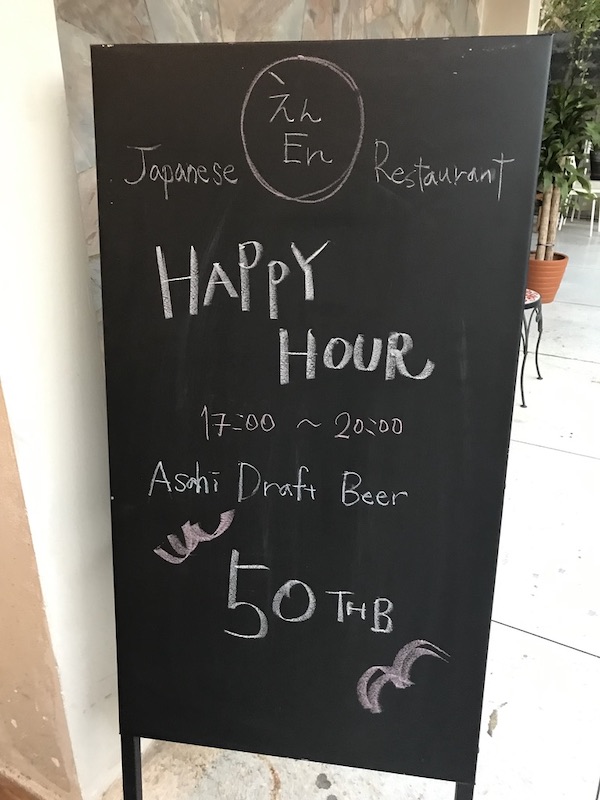 えん
En
Japanese Restaurant
HAPPY
HOUR
17:00 ~ 20:00
Asahi Draft Beer
50 THB